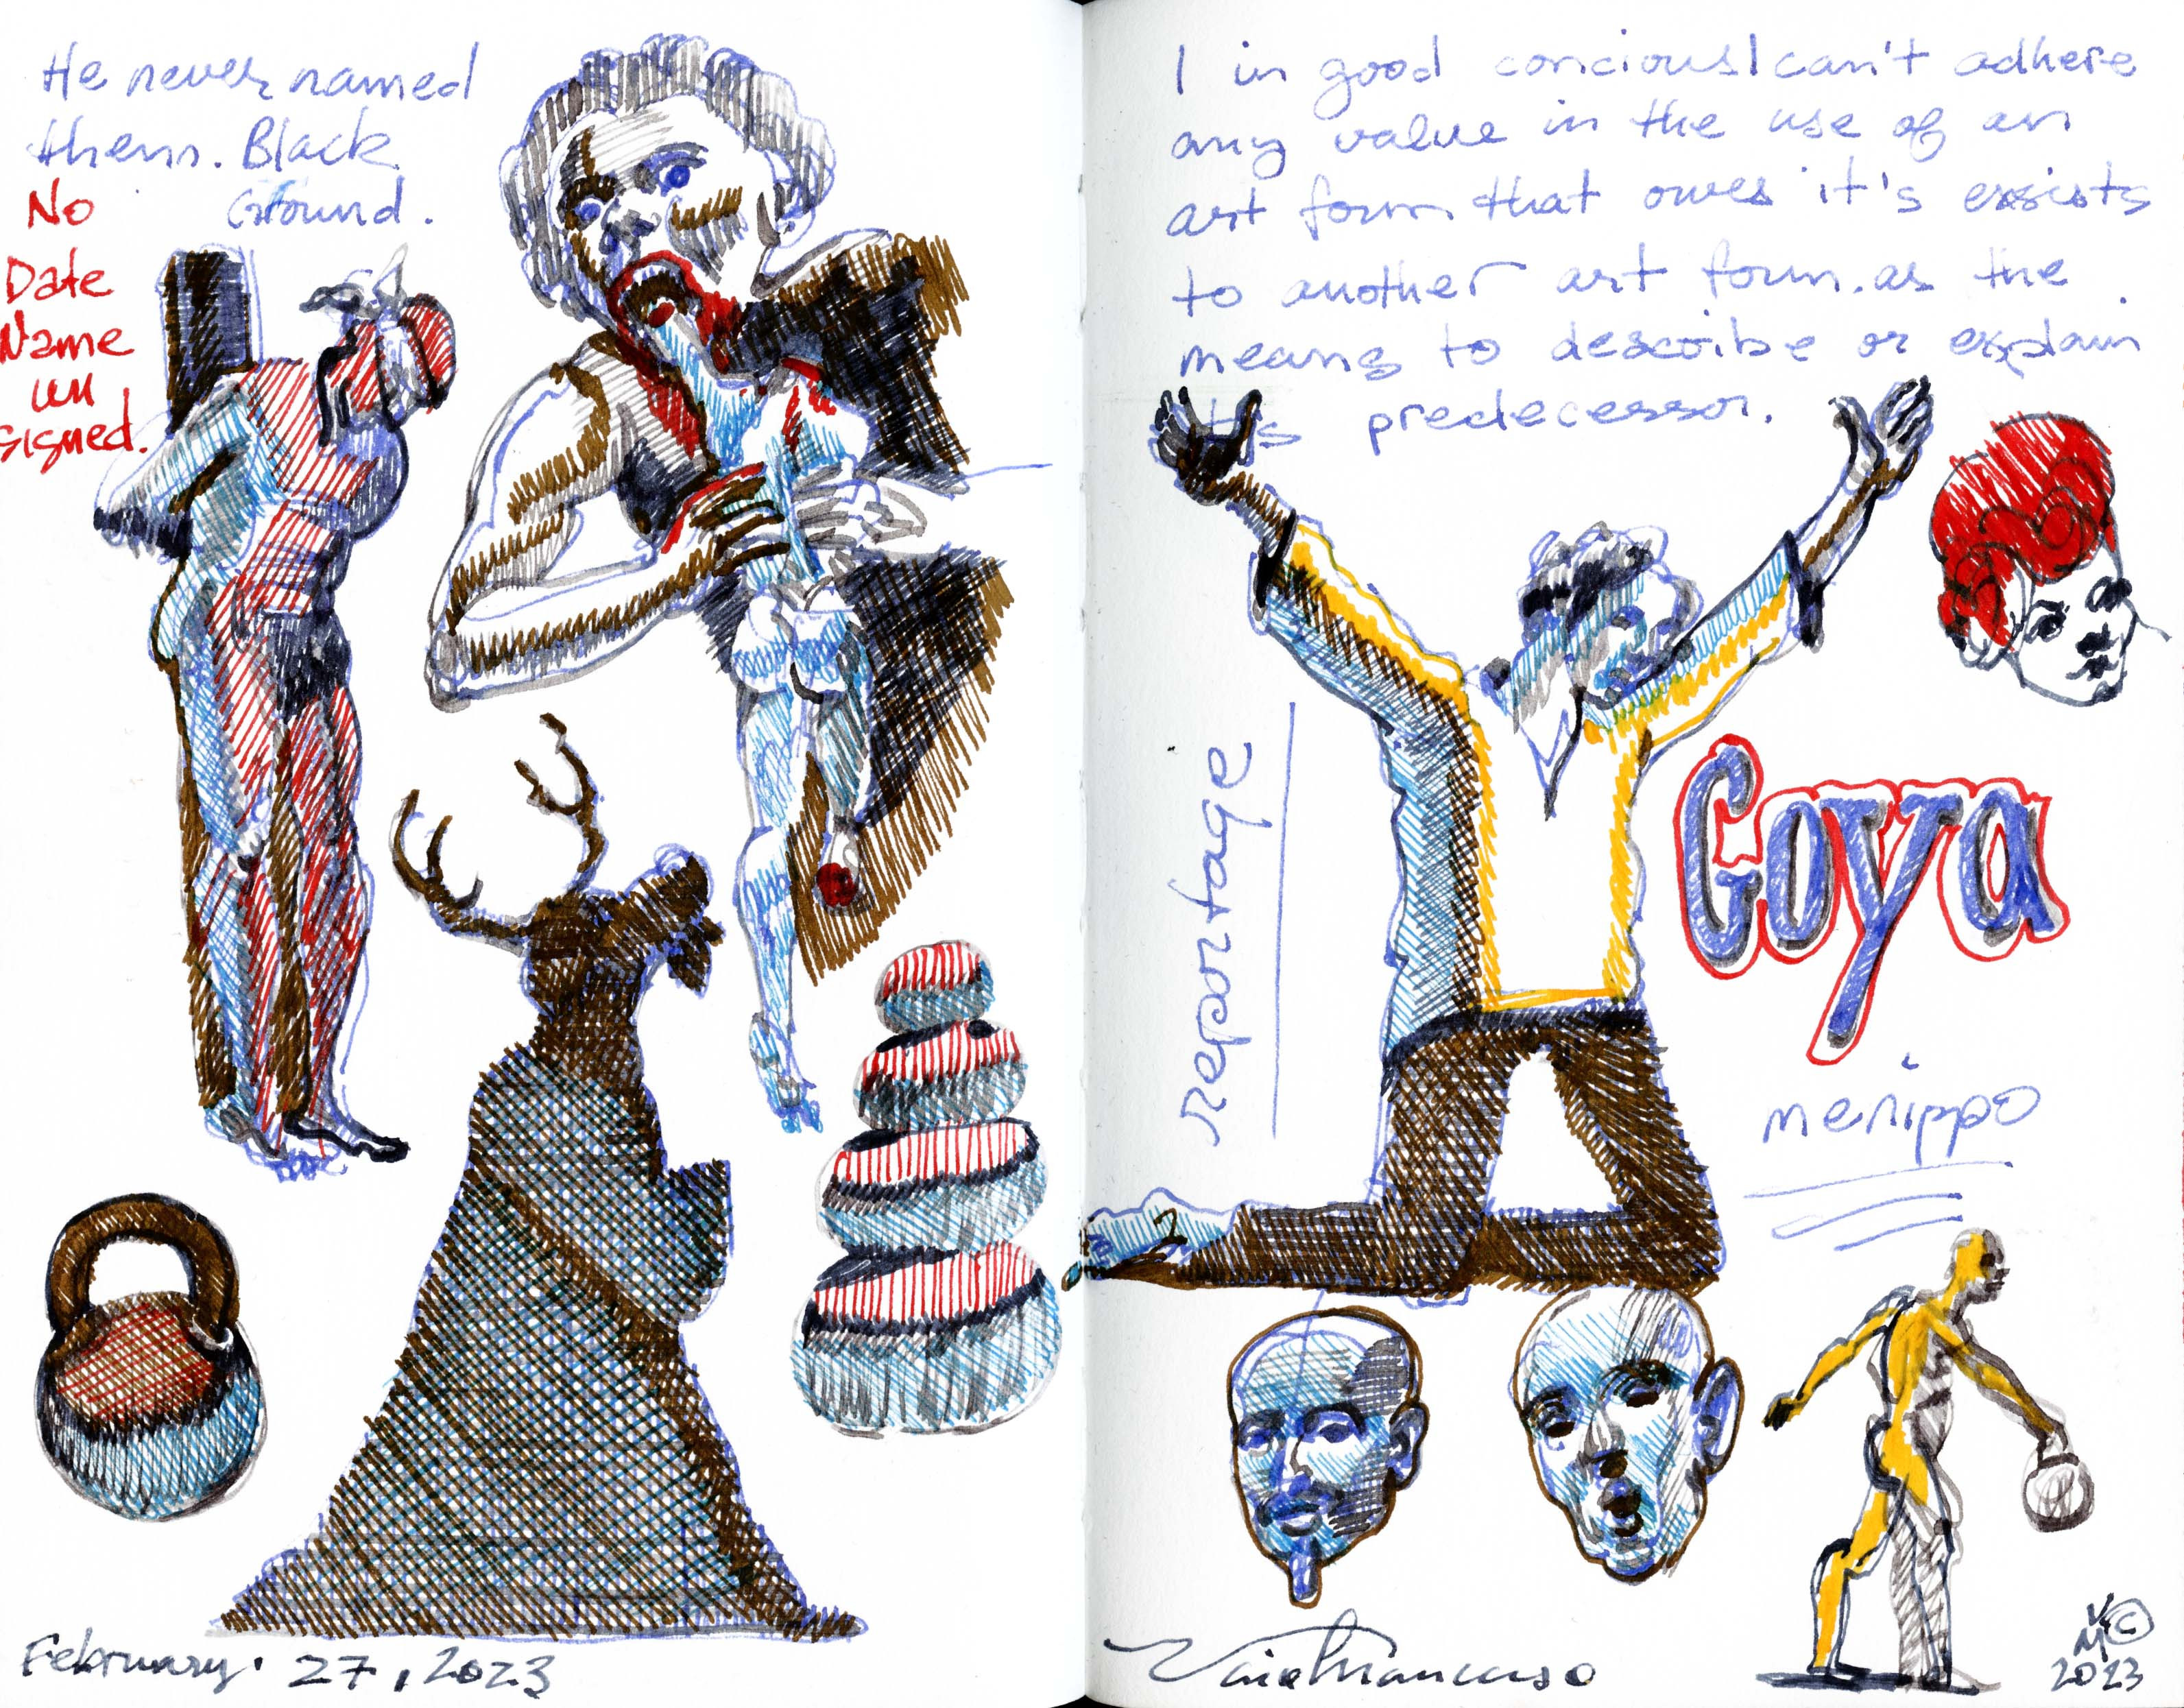 He never named
them. Black
Ground.
No
Date
Name
un
signed.
February. 27, 2023
I in good concious I can't adhere
any value in the use of an
art form that owes it's exsists
to another art form. as the
means to describe or explain
it's predecessor.
reportage
Goya
menippo
VM ©
2023